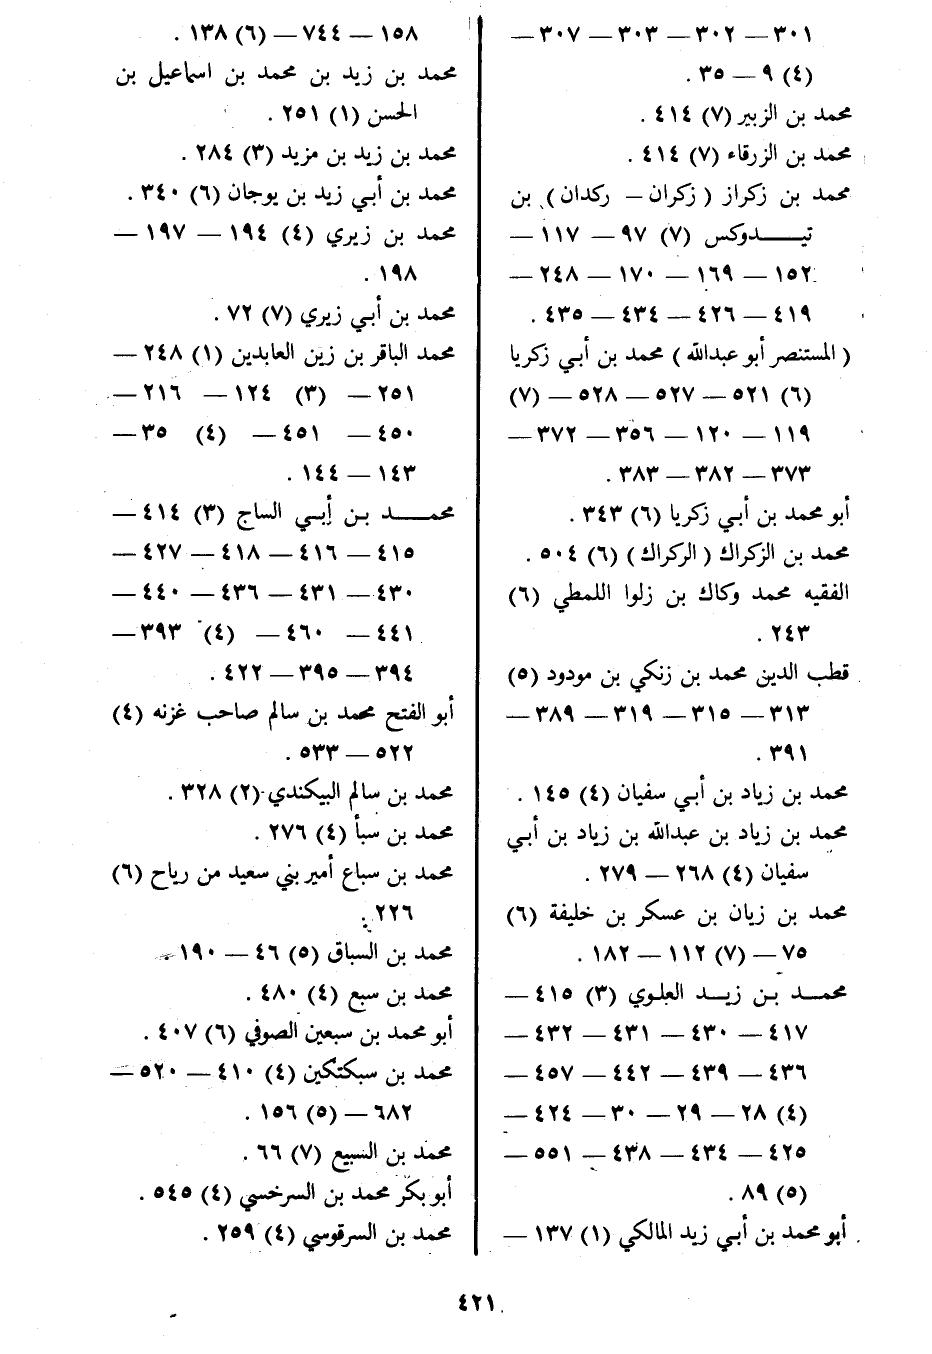 ٣٠١ — ٣٠٢ — ٣٠٣ — ٣٠٧ —
(٤) ٩ — ٣٥ .
محمد بن الزبير (٧) ٤١٤ .
محمد بن الزرقاء (٧) ٤١٤ .
محمد بن زكراز ( زكران — ركدان ) بن
تيـــدوكس (٧) ٩٧ — ١١٧ —
١٥٢ — ١٦٩ — ١٧٠ — ٢٤٨ —
٤١٩ — ٤٢٦ — ٤٣٤ — ٤٣٥ .
( المستنصر أبو عبدالله ) محمد بن أبي زكريا
(٦) ٥٢١ — ٥٢٧ — ٥٢٨ — (٧)
١١٩ — ١٢٠ — ٣٥٦ — ٣٧٢ —
٣٧٣ — ٣٨٢ — ٣٨٣ .
أبو محمد بن أبي زكريا (٦) ٣٤٣ .
محمد بن الزكراك ( الركراك ) (٦) ٥٠٤ .
الفقيه محمد وكاك بن زلوا اللمطي (٦)
٢٤٣ .
قطب الدين محمد بن زنكي بن مودود (٥)
٣١٣ — ٣١٥ — ٣١٩ — ٣٨٩ —
٣٩١ .
محمد بن زياد بن أبي سفيان (٤) ١٤٥ .
محمد بن زياد بن عبدالله بن زياد بن أبي
سفيان (٤) ٢٦٨ — ٢٧٩ .
محمد بن زيان بن عسكر بن خليفة (٦)
٧٥ — (٧) ١١٢ — ١٨٢ .
محمــد بـن زيــد العلوي (٣) ٤١٥ —
٤١٧ — ٤٣٠ — ٤٣١ — ٤٣٢ —
٤٣٦ — ٤٣٩ — ٤٤٢ — ٤٥٧ —
(٤) ٢٨ — ٢٩ — ٣٠ — ٤٢٤ —
٤٢٥ — ٤٣٤ — ٤٣٨ — ٥٥١ —
(٥) ٨٩ .
أبو محمد بن أبي زيد المالكي (١) ١٣٧ —
١٥٨ — ٧٤٤ — (٦) ١٣٨ .
محمد بن زيد بن محمد بن اسماعيل بن
الحسن (١) ٢٥١ .
محمد بن زيد بن مزيد (٣) ٢٨٤ .
محمد بن أبي زيد بن يوجان (٦) ٣٤٠ .
محمد بن زيري (٤) ١٩٤ — ١٩٧ —
١٩٨ .
محمد بن أبي زيري (٧) ٧٢ .
محمد الباقر بن زين العابدين (١) ٢٤٨ —
٢٥١ — (٣) ١٢٤ — ٢١٦ —
٤٥٠ — ٤٥١ — (٤) ٣٥ —
١٤٣ — ١٤٤ .
محمـــد بـن أبـي الساج (٣) ٤١٤ —
٤١٥ — ٤١٦ — ٤١٨ — ٤٢٧ —
٤٣٠ — ٤٣١ — ٤٣٦ — ٤٤٠ —
٤٤١ — ٤٦٠ — (٤) ٣٩٣ —
٣٩٤ — ٣٩٥ — ٤٢٢ .
أبو الفتح محمد بن سالم صاحب غزنه (٤)
٥٢٢ — ٥٣٣ .
محمد بن سالم البيكندي (٢) ٣٢٨ .
محمد بن سبأ (٤) ٢٧٦ .
محمد بن سباع أمير بني سعيد من رياح (٦)
٢٢٦ .
محمد بن السباق (٥) ٤٦ — ١٩٠ .
محمد بن سبع (٤) ٤٨٠ .
أبو محمد بن سبعين الصوفي (٦) ٤٠٧ .
محمد بن سبكتكين (٤) ٤١٠ — ٥٢٠ —
٦٨٢ — (٥) ١٥٦ .
محمد بن السبيع (٧) ٦٦ .
أبو بكر محمد بن السرخسي (٤) ٥٤٥ .
محمد بن السرقوسي (٤) ٢٥٩ .
٤٢١